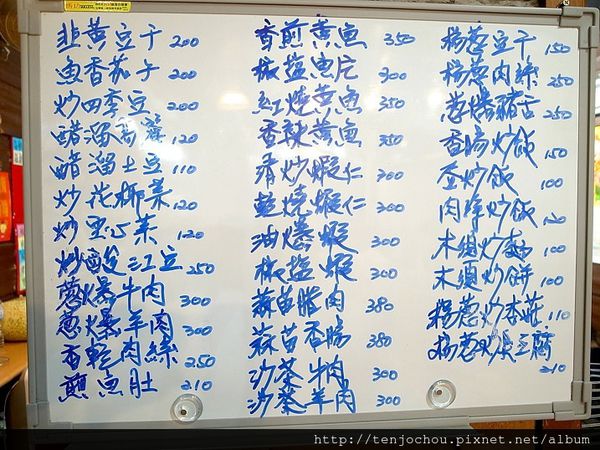 韭黃豆干 200
魚香茄子 200
炒四季豆 200
醋溜高麗 120
醋溜土豆 110
炒花椰菜 120
炒空心菜 120
炒酸江豆 250
蔥爆牛肉 300
蔥爆羊肉 300
香乾肉絲 250
煎魚肚 210
香煎黃魚 350
椒鹽魚片 300
紅燒黃魚 350
香辣黃魚 350
清炒蝦仁 300
乾燒蝦仁 300
油爆蝦 300
椒鹽蝦 300
蒜苗臘肉 380
蒜苗香腸 380
沙茶牛肉 300
沙茶羊肉 300
楊蔥豆干 150
楊蔥肉絲 250
蔥燒豬舌 250
香腸炒飯 150
蛋炒飯 100
肉絲炒飯 120
木須炒麵 100
木須炒餅 100
楊蔥炒杏菇 110
楊蔥 豆腐 210
http://tenjochou.pixnet.net/album